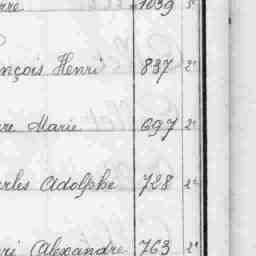 rre 1039 3e
nçois Henri 837 2e
re Marie 697 2e
rles Adolphe 728 2e
ri Alexandre 763 2e